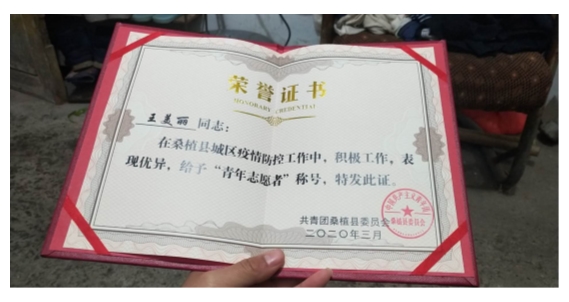 荣誉证书
HONORARY CREDENTIAL
王美丽 同志：
在桑植县城区疫情防控工作中，积极工作，表
现优异，给予“青年志愿者”称号，特发此证。
共青团桑植县委员会
二〇二〇年三月
桑植县委员会